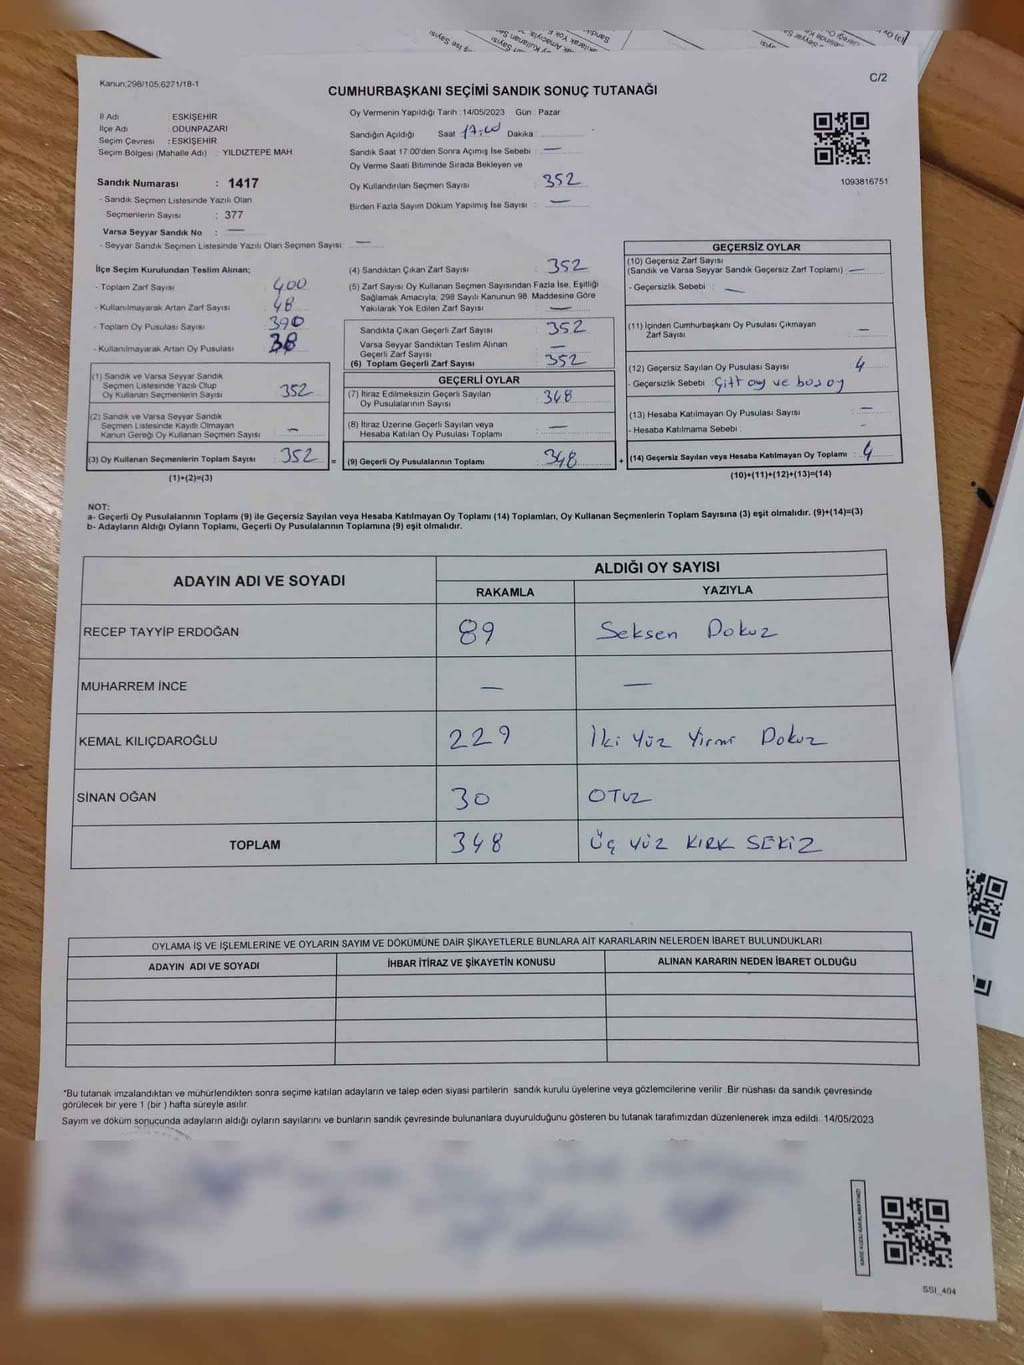 Kanun;298/105;6271/18-1
C/2
CUMHURBAŞKANI SEÇİMİ SANDIK SONUÇ TUTANAĞI
İl Adı : ESKİŞEHİR
İlçe Adı : ODUNPAZARI
Seçim Çevresi : ESKİŞEHİR
Seçim Bölgesi (Mahalle Adı) : YILDIZTEPE MAH
Sandık Numarası : 1417
- Sandık Seçmen Listesinde Yazılı Olan
Seçmenlerin Sayısı : 377
Varsa Seyyar Sandık No : —
- Seyyar Sandık Seçmen Listesinde Yazılı Olan Seçmen Sayısı: —
Oy Vermenin Yapıldığı Tarih :14/05/2023 Gün : Pazar
Sandığın Açıldığı Saat 17.00 Dakika
Sandık Saat 17:00'den Sonra Açımış İse Sebebi : —
Oy Verme Saati Bitiminde Sırada Bekleyen ve
Oy Kullandırılan Seçmen Sayısı : 352
Birden Fazla Sayım Döküm Yapılmış İse Sayısı : —
1093816751
İlçe Seçim Kurulundan Teslim Alınan;
- Toplam Zarf Sayısı : 400
- Kullanılmayarak Artan Zarf Sayısı : 48
- Toplam Oy Pusulası Sayısı : 390
- Kullanılmayarak Artan Oy Pusulası : 38
(1) Sandık ve Varsa Seyyar Sandık
Seçmen Listesinde Yazılı Olup
Oy Kullanan Seçmenlerin Sayısı : 352
(2) Sandık ve Varsa Seyyar Sandık
Seçmen Listesinde Kayıtlı Olmayan
Kanun Gereği Oy Kullanan Seçmen Sayısı : —
(3) Oy Kullanan Seçmenlerin Toplam Sayısı : 352
(1)+(2)=(3)
=
(4) Sandıktan Çıkan Zarf Sayısı : 352
(5) Zarf Sayısı Oy Kullanan Seçmen Sayısından Fazla İse, Eşitliği
Sağlamak Amacıyla; 298 Sayılı Kanunun 98. Maddesine Göre
Yakılarak Yok Edilen Zarf Sayısı : —
Sandıkta Çıkan Geçerli Zarf Sayısı : 352
Varsa Seyyar Sandıktan Teslim Alınan
Geçerli Zarf Sayısı : —
(6) Toplam Geçerli Zarf Sayısı : 352
GEÇERLİ OYLAR
(7) İtiraz Edilmeksizin Geçerli Sayılan
Oy Pusulalarının Sayısı : 348
(8) İtiraz Üzerine Geçerli Sayılan veya
Hesaba Katılan Oy Pusulası Toplamı : —
(9) Geçerli Oy Pusulalarının Toplamı : 348
+
GEÇERSİZ OYLAR
(10) Geçersiz Zarf Sayısı
(Sandık ve Varsa Seyyar Sandık Geçersiz Zarf Toplamı) : —
- Geçersizlik Sebebi : —
(11) İçinden Cumhurbaşkanı Oy Pusulası Çıkmayan
Zarf Sayısı : —
(12) Geçersiz Sayılan Oy Pusulası Sayısı : 4
- Geçersizlik Sebebi : Çift oy ve boş oy
(13) Hesaba Katılmayan Oy Pusulası Sayısı : —
- Hesaba Katılmama Sebebi : -
(14) Geçersiz Sayılan veya Hesaba Katılmayan Oy Toplamı : 4
(10)+(11)+(12)+(13)=(14)
NOT:
a- Geçerli Oy Pusulalarının Toplamı (9) ile Geçersiz Sayılan veya Hesaba Katılmayan Oy Toplamı (14) Toplamları, Oy Kullanan Seçmenlerin Toplam Sayısına (3) eşit olmalıdır. (9)+(14)=(3)
b- Adayların Aldığı Oyların Toplamı, Geçerli Oy Pusulalarının Toplamına (9) eşit olmalıdır.
ADAYIN ADI VE SOYADI
ALDIĞI OY SAYISI
RAKAMLA YAZIYLA
RECEP TAYYİP ERDOĞAN 89 Seksen Dokuz
MUHARREM İNCE — —
KEMAL KILIÇDAROĞLU 229 İki Yüz Yirmi Dokuz
SİNAN OĞAN 30 OTUZ
TOPLAM 348 ÜÇ YÜZ KIRK SEKİZ
OYLAMA İŞ VE İŞLEMLERİNE VE OYLARIN SAYIM VE DÖKÜMÜNE DAİR ŞİKAYETLERLE BUNLARA AİT KARARLARIN NELERDEN İBARET BULUNDUKLARI
ADAYIN ADI VE SOYADI İHBAR İTİRAZ VE ŞİKAYETİN KONUSU ALINAN KARARIN NEDEN İBARET OLDUĞU
*Bu tutanak imzalandıktan ve mühürlendikten sonra seçime katılan adayların ve talep eden siyasi partilerin sandık kurulu üyelerine veya gözlemcilerine verilir .Bir nüshası da sandık çevresinde
görülecek bir yere 1 (bir ) hafta süreyle asılır.
Sayım ve döküm sonucunda adayların aldığı oyların sayılarını ve bunların sandık çevresinde bulunanlara duyurulduğunu gösteren bu tutanak tarafımızdan düzenlenerek imza edildi. 14/05/2023
SSI_404